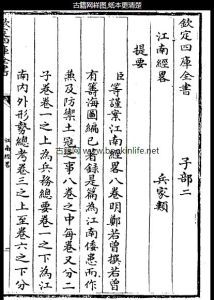 古籍网样图,纸本更清楚
欽定四庫全書　子部二
江南經略　兵家類
提要
臣等謹案江南經略八卷明鄭若曾撰若曾
有籌海圖編已著録是篇為江南倭患而作
兼及防禦土寇之事八卷之中每卷又分二
子卷卷一之上為兵務總要卷一之下為江
南内外形勢總考卷二之上至卷六之下分
欽定四庫全書
江南經略
www.bookinlife.net